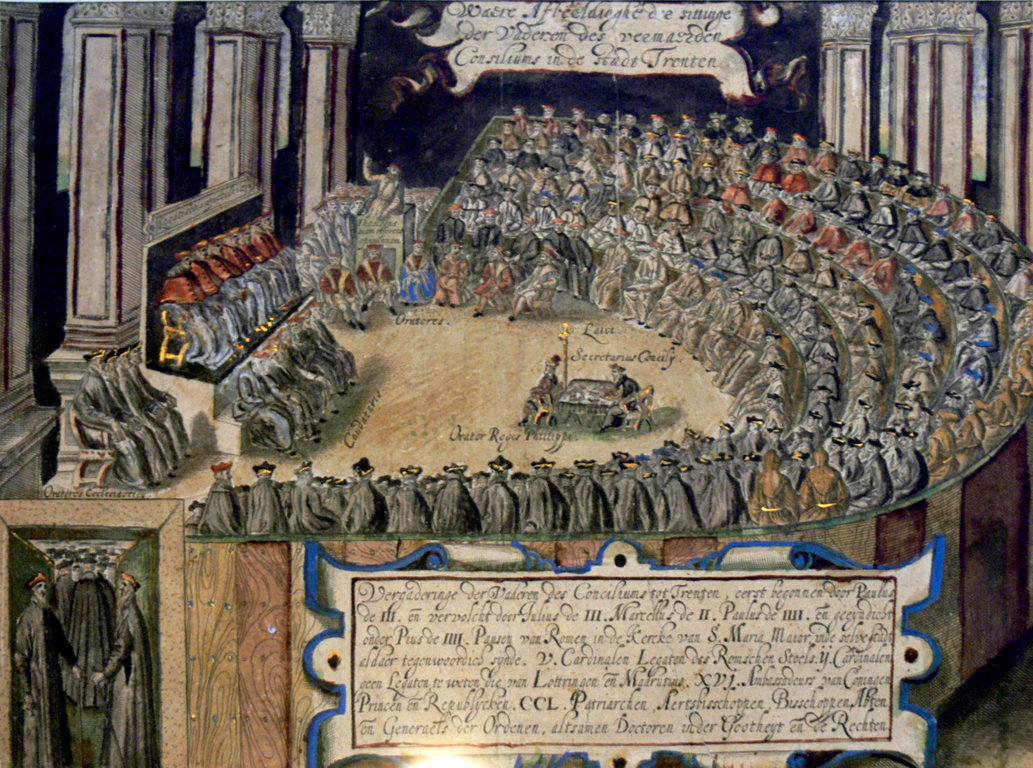 Waere Afbeeldinghe der sittinge
der Vaderen des vermaerden
Consiliums in de Stadt Trenten
Oratores.
Laici
Secretarius Concilij.
Orator Regis Philippi.
Oratores Ecclesiastici
Vergaderinge der Vaderen des Conciliums tot Trenten, eerst begonnen door Paulus
de III. en vervolcht door Julius de III. Marcellus de II. Paulus de IIII. en geeyndicht
onder Pius de IIII. Pausen van Romen in de Kercke van S. Maria Maior inde selve stadt
aldaer tegenwoordich synde. V. Cardinalen Legaten des Roomschen Stoels. ij. Cardinalen
geen Legaten te weten die van Lottringen en Madrutius. XVI. Ambassadeurs van Coningen
Princen en Republijcken. CCL. Patriarchen, Aertsbisschoppen, Bisschoppen, Abten,
en Generaels der Ordenen, altsamen Doctoren inder Gootheyt en de Rechten